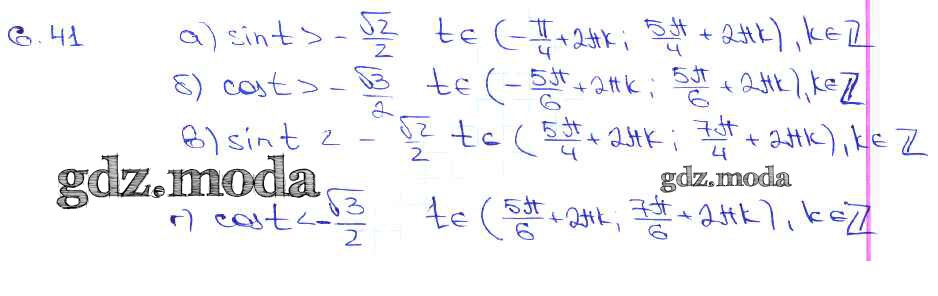 6.41 а) sin t > -√2/2 t ∈ (-π/4 + 2πk; 5π/4 + 2πk), k ∈ ℤ
б) cos t > -√3/2 t ∈ (-5π/6 + 2πk; 5π/6 + 2πk), k ∈ ℤ
в) sin t < -√2/2 t ∈ (5π/4 + 2πk; 7π/4 + 2πk), k ∈ ℤ
gdz.moda gdz.moda
г) cos t < -√3/2 t ∈ (5π/6 + 2πk; 7π/6 + 2πk), k ∈ ℤ